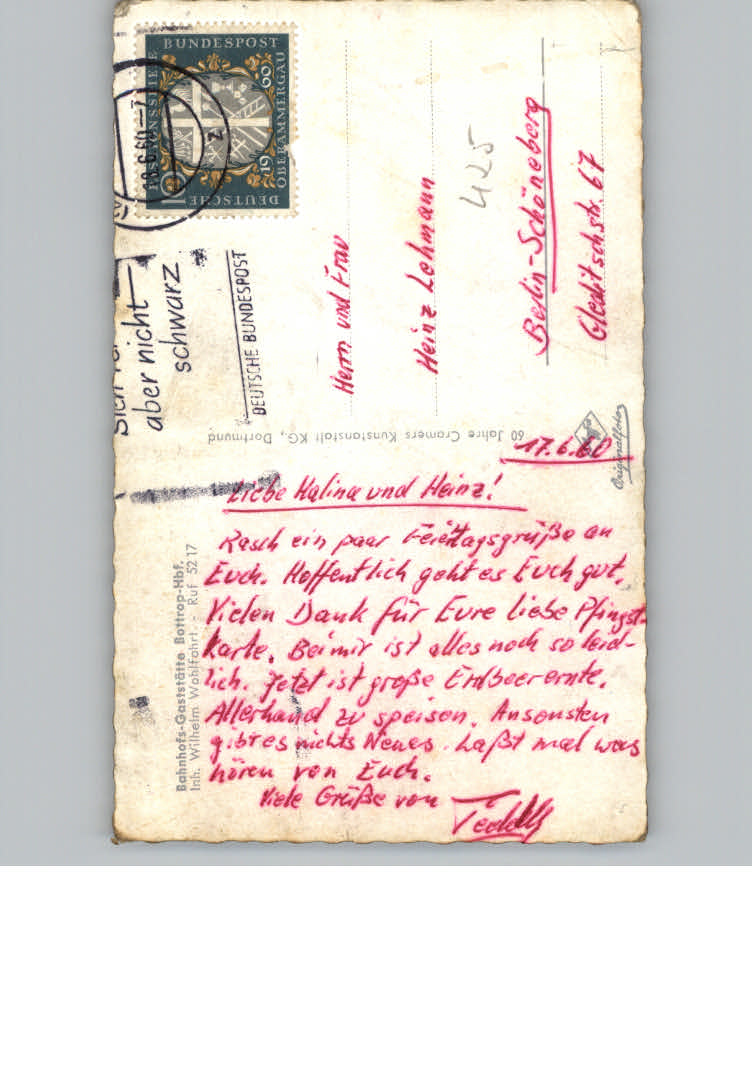 BUNDESPOST
OBERAMMERGAU
1960
DEUTSCHE
10
.6.60-7
aber nicht
schwarz
DEUTSCHE BUNDESPOST
Herrn und Frau
Heinz Lehmann
425
Berlin-Schöneberg
Gleditschstr. 67
60 Jahre Cramers Kunstanstalt KG, Dortmund
Originalfoto
Bahnhofs-Gaststätte Bottrop-Hbf.
Inh. Wilhelm Wohlfahrt - Ruf 52 17
17.6.60
Liebe Halina und Heinz!
Rasch ein paar Feiertagsgrüße an
Euch. Hoffentlich geht es Euch gut.
Vielen Dank für Eure liebe Pfingst-
karte. Bei mir ist alles noch so leid-
lich. Jetzt ist große Erdbeerernte.
Allerhand zu speisen. Ansonsten
gibt es nichts Neues. Laßt mal was
hören von Euch.
Viele Grüße von
Teddy